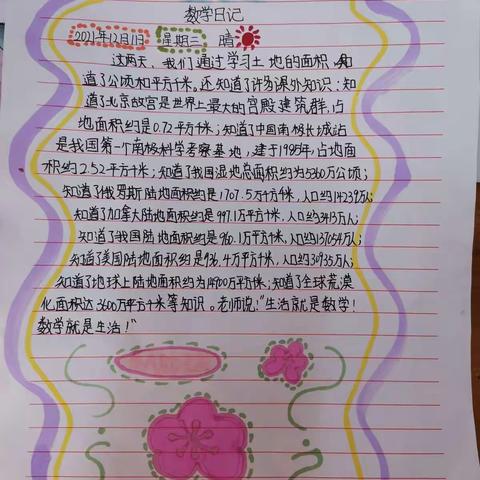 数学日记
2021年12月1日 星期三 晴
这两天、我们通过学习土地的面积、知
道了公顷和平方千米。还知道了许多课外知识：知
道了北京故宫是世界上最大的宫殿建筑群，占
地面积约是0.72平方千米；知道了中国南极长城站
是我国第一个南极科学考察基地，建于1985年，占地面
积约2.52平方千米；知道了我国湿地总面积约为5360万公顷；
知道了俄罗斯陆地面积约是1707.5万平方千米，人口约14239万人；
知道了加拿大陆地面积约是997.1万平方千米，人口约3413万人；
知道了我国陆地面积约是960.1万平方千米，人口约137054万人；
知道了美国陆地面积约是936.4万平方千米，人口约30935万人；
知道了地球上陆地面积约为14900万平方千米；知道了全球荒漠
化面积达3600万平方千米等知识。老师说：“生活就是数学！
数学就是生活！”